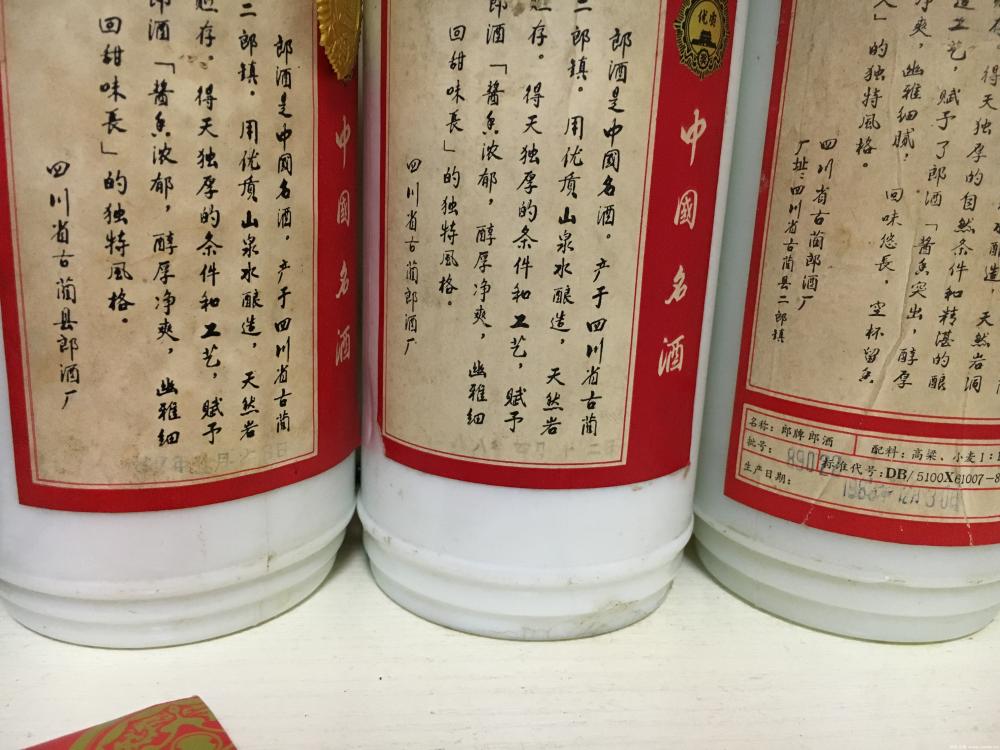 郎酒是中國名酒。产于四川省古藺
二郎镇。用优质山泉水酿造，天然岩
贮存。得天独厚的条件和工艺，赋予
郎酒「醬香浓郁，醇厚净爽，幽雅细
回甜味長」的独特風格。
四川省古藺县郎酒厂
中國名酒
郎酒是中國名酒。产于四川省古藺
二郎镇。用优质山泉水酿造，天然岩
存。得天独厚的条件和工艺，赋予
郎酒「醬香浓郁，醇厚净爽，幽雅细
回甜味長」的独特風格。
四川省古藺郎酒厂
优
中國名酒
酿造，天然岩洞
得天独厚的自然条件和精湛的酿
造工艺，赋予了郎酒「醬香突出，醇厚
净爽，幽雅细腻，回味悠長，空杯留香
」的独特風格。
四川省古藺郎酒厂
厂址：四川省古藺县二郎镇
名称：郎牌郎酒
配料：高梁、小麦
批号：
标准代号：DB/5100X61007-8
生产日期：